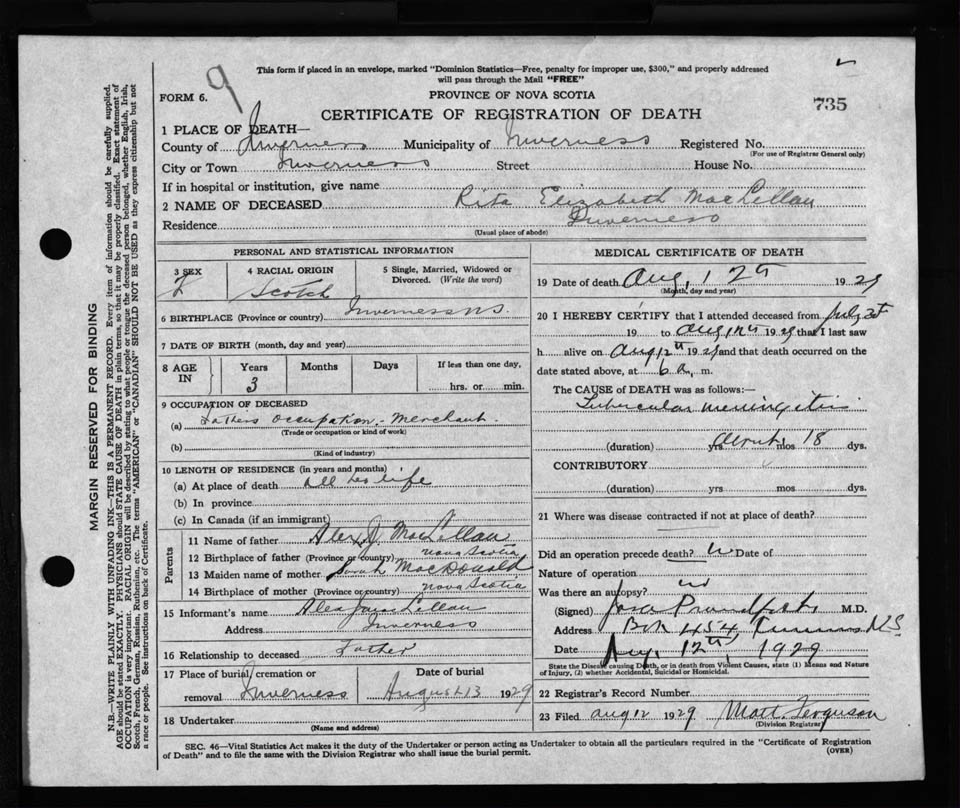 This form if placed in an envelope, marked "Dominion Statistics—Free, penalty for improper use, $300," and properly addressed
will pass through the Mail "FREE"
9
FORM 6.
PROVINCE OF NOVA SCOTIA
735
CERTIFICATE OF REGISTRATION OF DEATH
1 PLACE OF DEATH—
County of Inverness Municipality of Inverness Registered No.
(For use of Registrar General only)
City or Town Inverness Street House No.
If in hospital or institution, give name
2 NAME OF DECEASED Rita Elizabeth MacLellan
Residence Inverness
(Usual place of abode)
PERSONAL AND STATISTICAL INFORMATION
3 SEX 4 RACIAL ORIGIN 5 Single, Married, Widowed or
Divorced. (Write the word)
F Scotch
6 BIRTHPLACE (Province or country) Inverness N.S.
7 DATE OF BIRTH (month, day and year)
8 AGE IN Years Months Days If less than one day,
3 hrs. or min.
9 OCCUPATION OF DECEASED
(a) Fathers occupation. Merchant.
(Trade or occupation or kind of work)
(b)
(Kind of industry)
10 LENGTH OF RESIDENCE (in years and months)
(a) At place of death All her life
(b) In province
(c) In Canada (if an immigrant)
Parents
11 Name of father Alex J. MacLellan
12 Birthplace of father (Province or country) Nova Scotia
13 Maiden name of mother Sarah MacDonald
14 Birthplace of mother (Province or country) Nova Scotia
15 Informant's name Alex J MacLellan
Address Inverness
16 Relationship to deceased Father
17 Place of burial, cremation or Date of burial
removal Inverness August 13 1929
18 Undertaker
(Name and address)
MEDICAL CERTIFICATE OF DEATH
19 Date of death Aug, 12th 1929
(Month, day and year)
20 I HEREBY CERTIFY that I attended deceased from July 25
19 to Aug 12th 1929 that I last saw
h alive on Aug 12th 1929 and that death occurred on the
date stated above, at 6 a, m.
The CAUSE of DEATH was as follows:—
Tubercular meningitis
(duration) yrs. about mos 18 dys.
CONTRIBUTORY
(duration) yrs mos dys.
21 Where was disease contracted if not at place of death?
Did an operation precede death? Date of
Nature of operation
Was there an autopsy? no
(Signed) M.D.
Address Box 454 Inverness N.S.
Date Aug. 12th, 1929
State the Disease causing Death, or in death from Violent Causes, state (1) Means and Nature
of Injury, (2) whether Accidental, Suicidal or Homicidal.
22 Registrar's Record Number
23 Filed Aug 12 1929 Matt. Ferguson
(Division Registrar)
SEC. 46—Vital Statistics Act makes it the duty of the Undertaker or person acting as Undertaker to obtain all the particulars required in the "Certificate of Registration
of Death" and to file the same with the Division Registrar who shall issue the burial permit. (OVER)
MARGIN RESERVED FOR BINDING
N.B.—WRITE PLAINLY WITH UNFADING INK—THIS IS A PERMANENT RECORD. Every item of information should be carefully supplied.
AGE should be stated EXACTLY. PHYSICIANS should STATE CAUSE OF DEATH in plain terms, so that it may be properly classified. Exact statement of
OCCUPATION is very important. RACIAL ORIGIN will be described by stating to what people or tongue the deceased person belonged, whether English, Irish,
Scotch, French, German, Russian, Ruthenian, etc. The terms "AMERICAN" or "CANADIAN" SHOULD NOT BE USED as they express citizenship but not
a race or people. See instructions on back of Certificate.